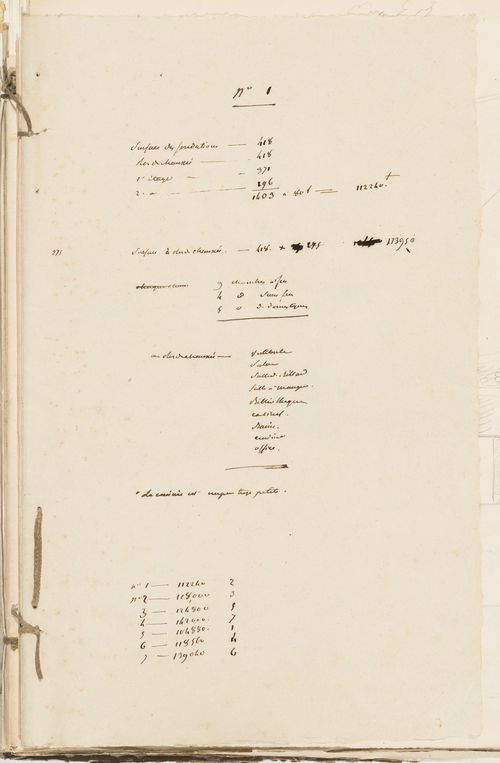 N° 1
Surface des fondations — 418
Rez de chaussée — 418
1er étage — 371
2. " — 196
1403 a 80f = 112240.
371 Surface à rez de chaussée. — 418. + 275 113950
9 chambres à feu
4 Sans feu
5 de domestiques
au rez de chaussée — Vestibule
Salon
Salle de Billard
Salle à manger.
Bibliothèque
cabinet.
Bains.
cuisine
office.
* La cuisine est un peu trop petite.
n° 1 — 112240 2
n° 2 — 118,000 3
3 — 124800 5
4 — 142000. 7
5 — 104880. 1
6 — 118560 4
7 — 139040 6